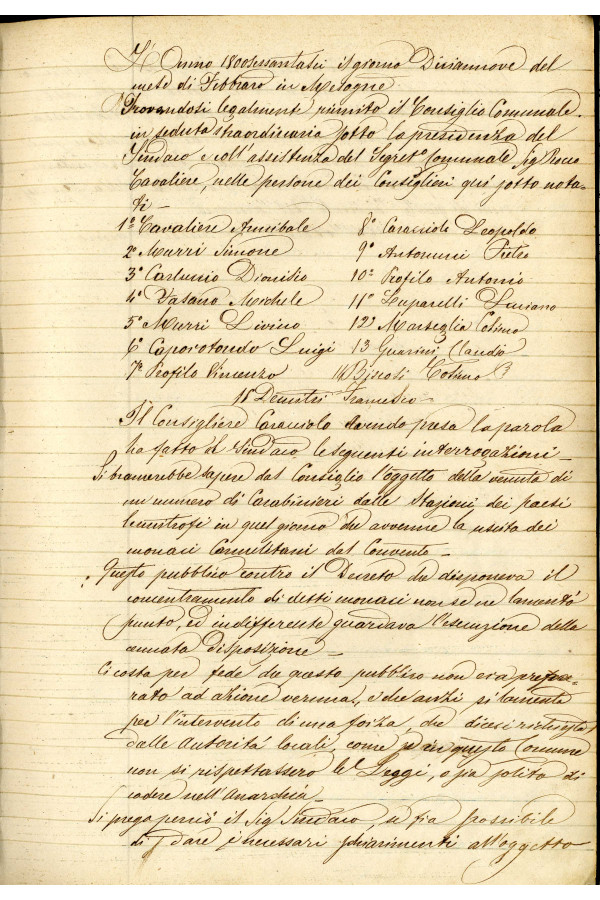 L'Anno 1800sessantasei il giorno Diciannove del
mese di Febbraro in Mesagne
Trovandosi legalmente riunito il Consiglio Comunale
in seduta straordinaria sotto la presidenza del
Sindaco e coll'assistenza del Segret.o Comunale Sig Rocco
Cavaliere, nelle persone dei Consiglieri qui sotto nota-
ti -
1° Cavaliere Annibale
2° Murri Simone
3° Carluccio Dionisio
4° Vasano Michele
5° Murri Livino
6° Caporotondo Luigi
7° Profilo Vincenzo
8° Caracciolo Leopoldo
9° Antonucci Pietro
10° Profilo Antonio
11° Luparelli Luciano
12° Marseglia Cosimo
13 Guarini Claudio
14 Biscosi Cosimo
15 Demitri Francesco -
Il Consigliere Caracciolo avendo presa la parola
ha fatto al Sindaco le seguenti interrogazioni -
Si bramerebbe sapere dal Consiglio l'oggetto della venuta di
un numero di Carabinieri dalle Stazioni dei paesi
limitrofi in quel giorno che avvenne la uscita dei
monaci Carmelitani dal Convento -
Questo pubblico contro il Decreto che disponeva il
concentramento di detti monaci non se ne lamentò
punto, ed indifferente guardava l'esecuzione della
cennata disposizione -
Ci costa per fede che questo pubblico non era prepa-
rato ad azione veruna, e che anzi si lamenta
per l'intervento di una forza, che dicesi richiesta
dalle Autorità locali, come se in questo Comune
non si rispettassero le Leggi, o sia solito di
cadere nell'Anarchia -
Si prega perciò il Sig Sindaco, se sia possibile
di dare i necessari schiarimenti all'oggetto -